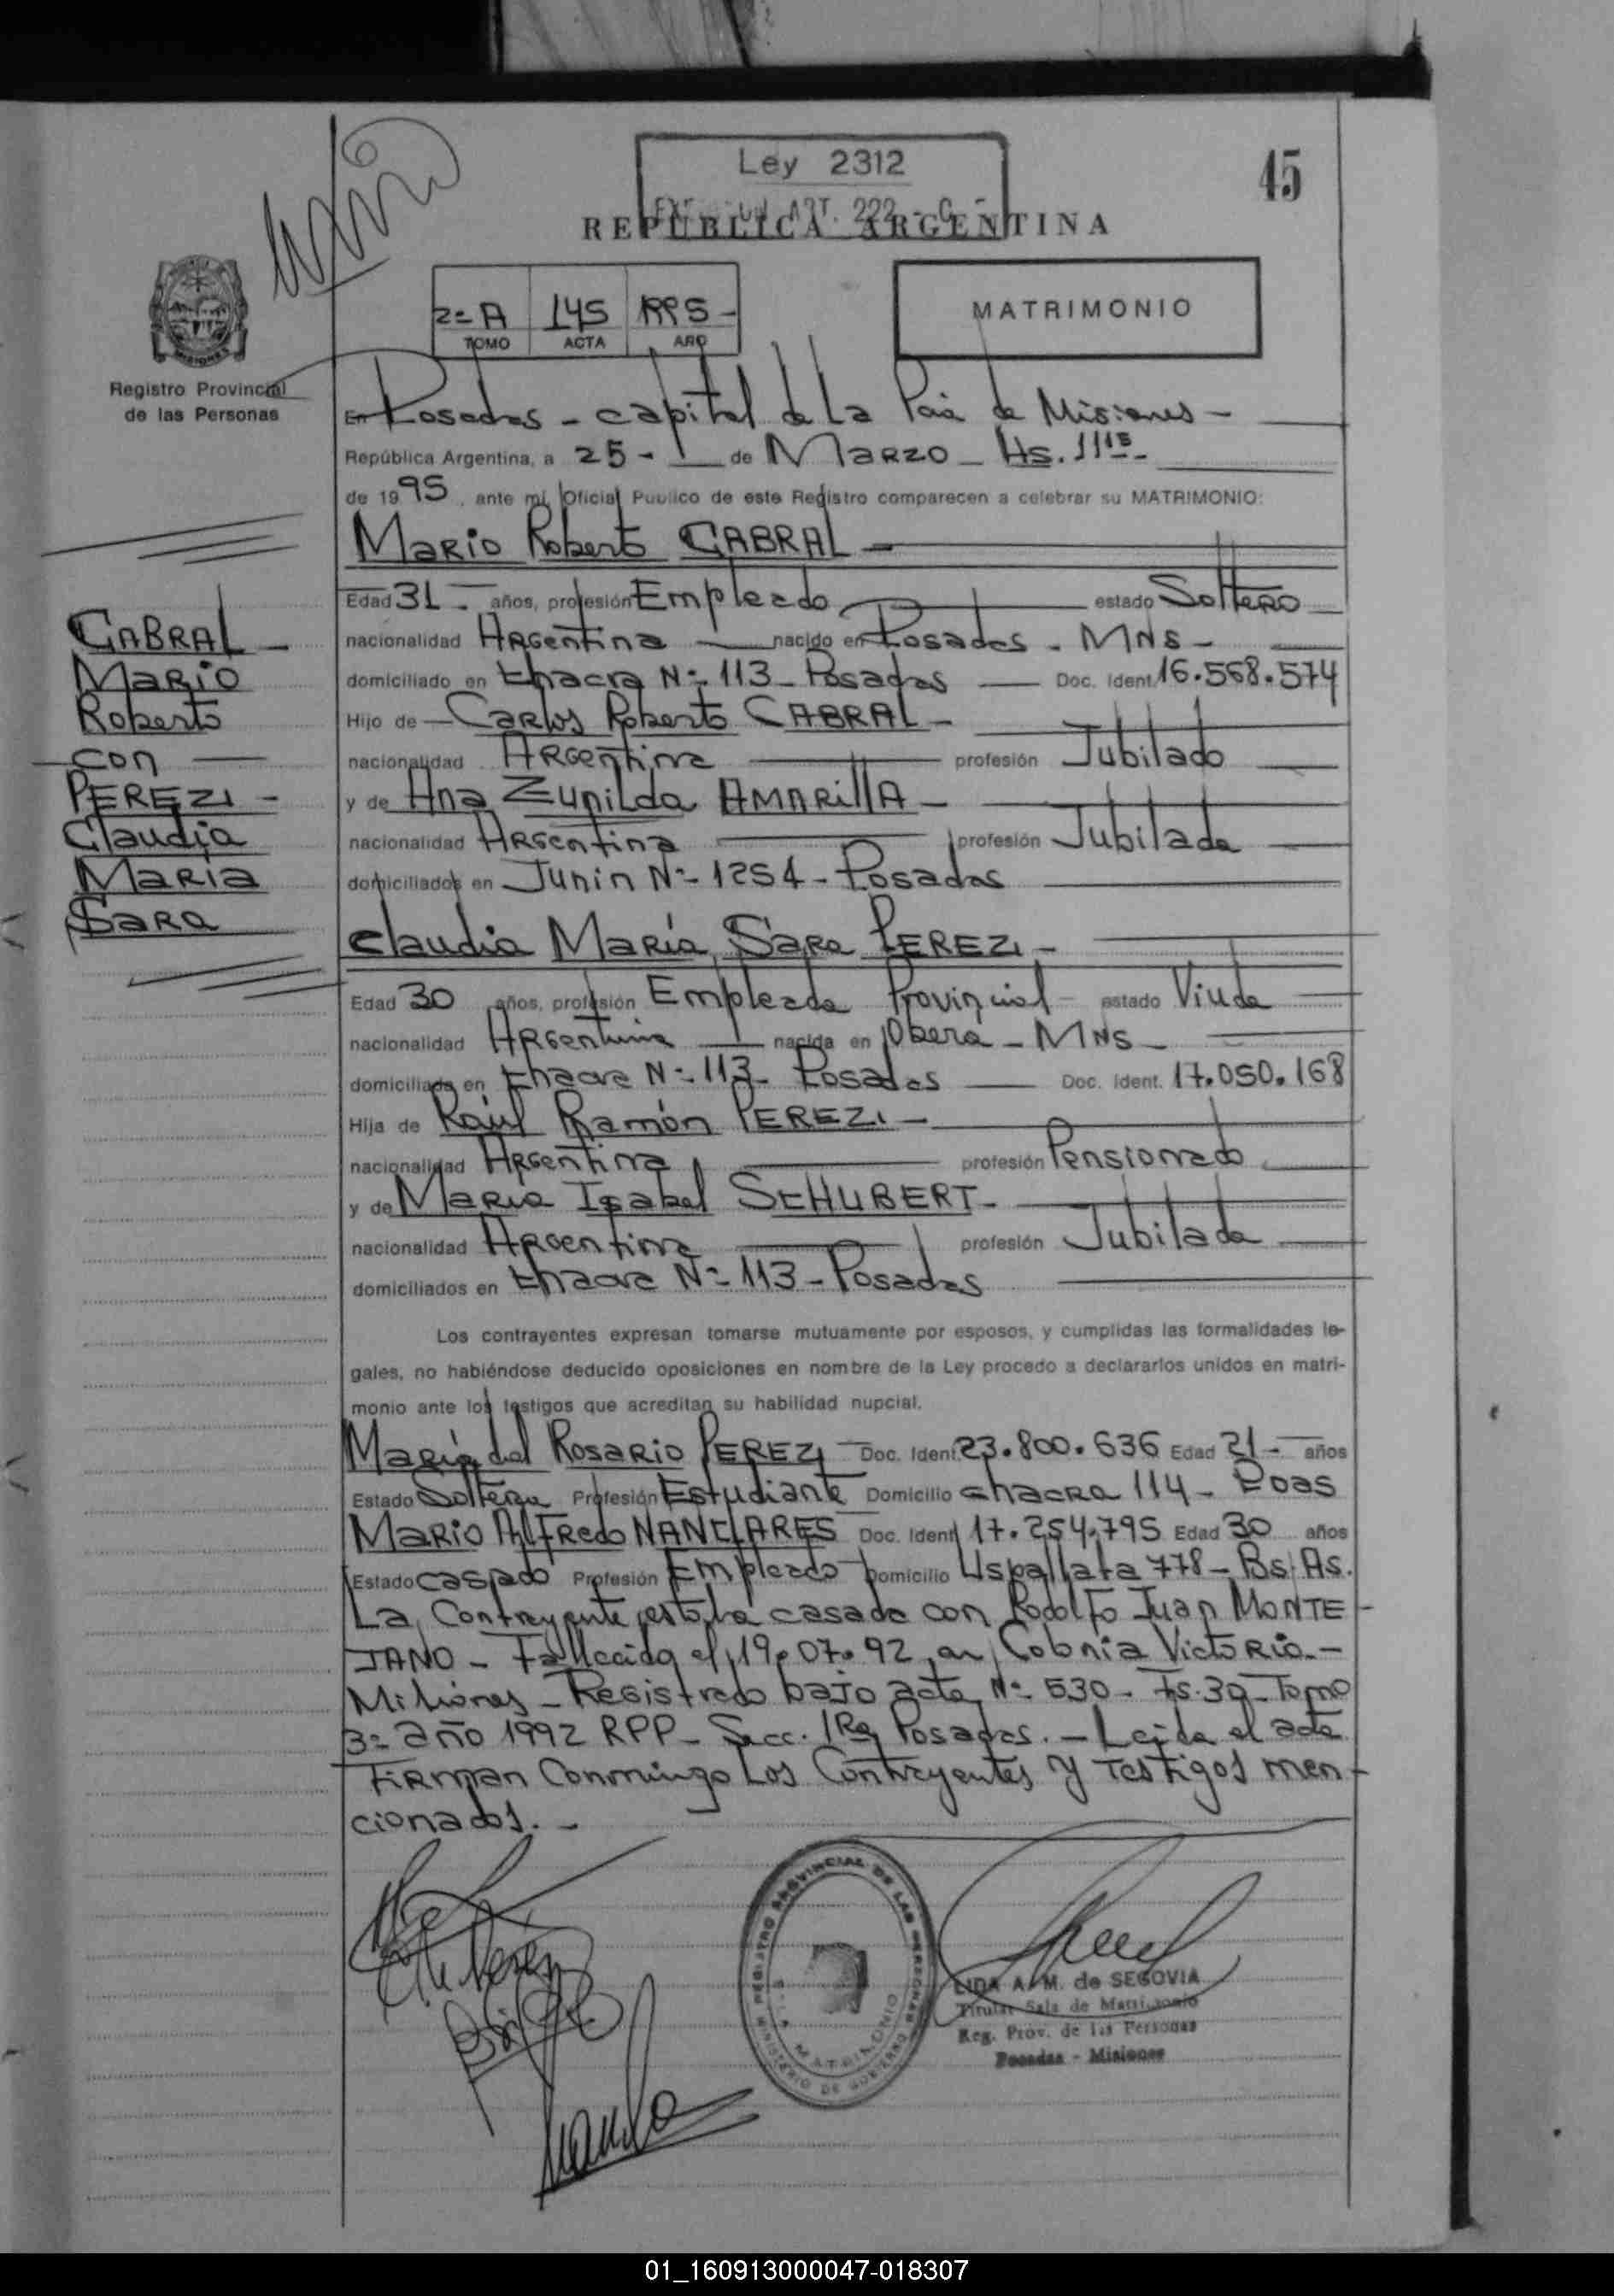 Ley 2312
45
REPUBLICA ARGENTINA
2º A 145 1995
TOMO ACTA AÑO
MATRIMONIO
MISIONES
Registro Provincial
de las Personas
En Posadas - capital de La Pcia de Misiones -
República Argentina, a 25 - de Marzo - Hs. 11 15 -
de 1995, ante mi, Oficial Publico de este Registro comparecen a celebrar su MATRIMONIO:
Mario Roberto CABRAL -
Edad 31 - años, profesión Empleado estado Soltero
nacionalidad Argentina nacido en Posadas - MNS -
domiciliado en Chacra Nº 113 - Posadas Doc. Ident. 16.568.574
Hijo de Carlos Roberto CABRAL -
nacionalidad Argentina profesión Jubilado
y de Ana Zunilda AMARILLA -
nacionalidad Argentina profesión Jubilada
domiciliados en Junin Nº 1254 - Posadas
CABRAL -
Mario
Roberto
con
PEREZI -
Claudia
Maria
Sara
Claudia María Sara PEREZI -
Edad 30 años, profesión Empleada Provincial - estado Viuda
nacionalidad Argentina nacida en Oberá - MNS -
domiciliada en Chacra Nº 113 - Posadas Doc. Ident. 17.050.168
Hija de Raúl Ramón PEREZI -
nacionalidad Argentina profesión Pensionado
y de Maria Isabel SCHUBERT -
nacionalidad Argentina profesión Jubilada
domiciliados en Chacra Nº 113 - Posadas
Los contrayentes expresan tomarse mutuamente por esposos, y cumplidas las formalidades le-
gales, no habiéndose deducido oposiciones en nombre de la Ley procedo a declararlos unidos en matri-
monio ante los testigos que acreditan su habilidad nupcial.
María del Rosario PEREZI - Doc. Ident. 23.800.636 Edad 21 - años
Estado Soltera Profesión Estudiante Domicilio Chacra 114 - Poas
Mario Alfredo NANCLARES Doc. Ident 17.254.795 Edad 30 años
Estado casado Profesión Empleado Domicilio Uspallata 778 - Bs. As.
La Contrayente estaba casada con Rodolfo Juan MONTE-
JANO - Fallecido el 19.07.92 en Colonia Victoria -
Misiones - Registrado bajo acta Nº 530 - Fs. 30 - Tomo
3º año 1992 RPP - Secc. 1Ra Posadas. - Leída el acta
Firman Conmingo Los Contrayentes y Testigos men-
cionados. -
REGISTRO PROVINCIAL DE LAS PERSONAS
MINISTERIO DE GOBIERNO
MATRIMONIO
LIDA A. M. de SEGOVIA
Titular Sala de Matrimonio
Reg. Prov. de las Personas
Posadas - Misiones
01_160913000047-018307